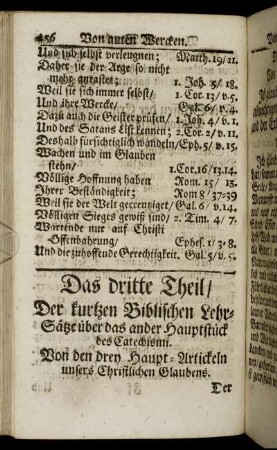 456 Von guten Wercken.
Und sich selbst verleugnen; Matth. 19/21.
Daher sie der Arge so nicht
mehr antastet; 1. Joh. 5/18.
Weil sie sich immer selbst/ 1. Cor. 13/v. 5.
Und ihre Wercke/ Gal. 6/v. 4.
Dazu auch die Geister prüfen/ 1. Joh. 4/v. 1.
Und des Satans List kennen; 2. Cor. 2/v. 11.
Deshalb fürsichtiglich wandeln/ Eph. 5/v. 15.
Wachen und im Glauben
stehn/ 1. Cor. 16/13. 14.
Völlige Hoffnung haben Rom. 15/13.
Ihrer Beständigkeit; Rom 8/37-39
Weil sie der Welt gecreutziget/ Gal. 6/v. 14.
Völligen Sieges gewiß sind/ 2. Tim. 4/7.
Wartende nur auf Christi
Offenbahrung/ Ephes. 1/3-8.
Und die zuhoffende Gerechtigkeit. Gal. 5/v. 5.
Das dritte Theil/
Der kurtzen Biblischen Lehr-
Sätze über das ander Hauptstück
des Catechismi.
Von den drey Haupt-Artickeln
unsers Christlichen Glaubens.
Der